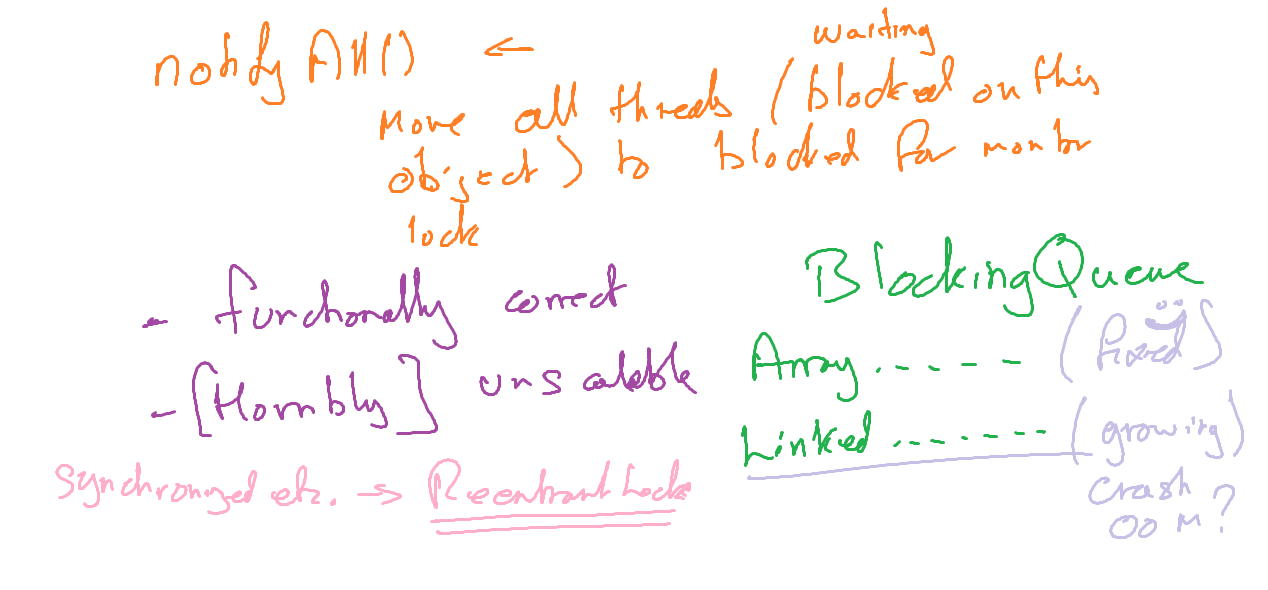 notifyAll() ←
waiting
Move all threads (blocked on this
object) to blocked for monitor
lock
- functionally correct
- [Horribly] unscalable
Synchronized etc. → ReentrantLocks
BlockingQueue
Array ..--- (fixed)
Linked ....--- (growing)
Crash
OOM?